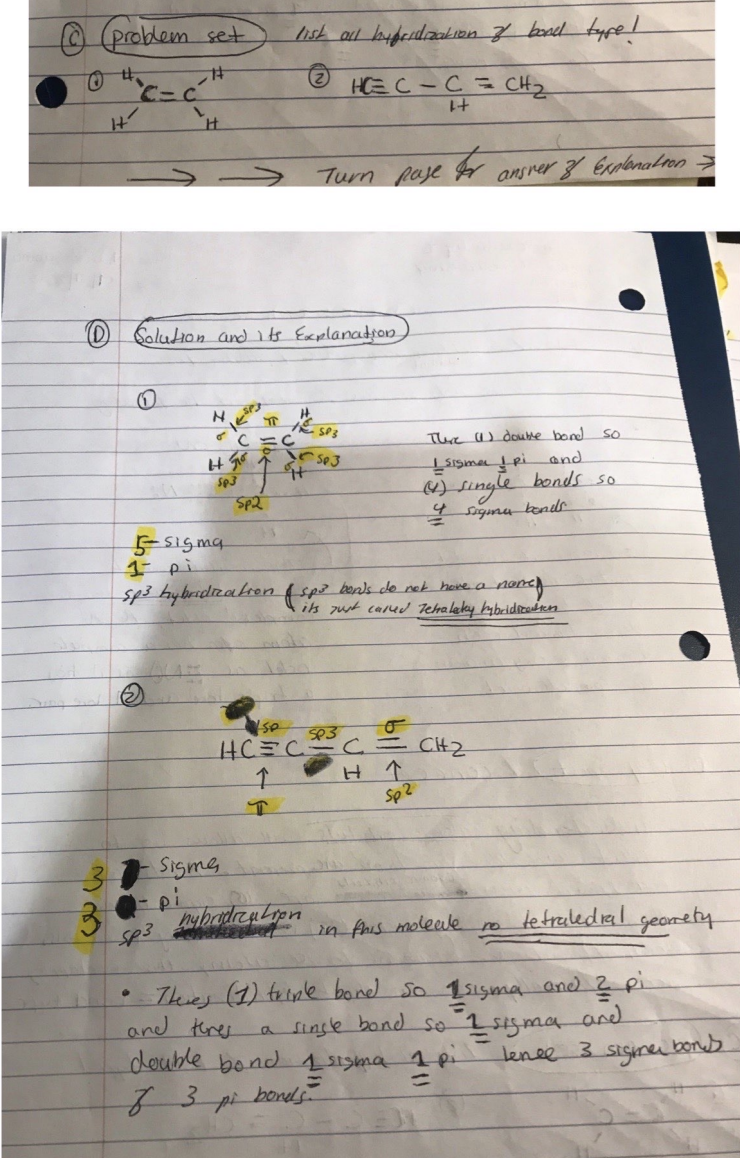 C problem set list all hybridization & bond type!
① H H ② HC≡C-C=CH2
C=C H
H H
→ → Turn page for answer & Explanation →
D Solution and its Explanation
①
H sp3 π H
σ C=C σ sp3
H σ σ σ sp3
sp3 H
sp2
There (1) double bond so
1 sigma 1 pi and
(4) single bonds so
4 sigma bonds
5-sigma
1- pi
sp3 hybridization (sp3 bonds do not have a name)
its just called
②
sp sp3 σ
HC≡C-C=CH2
↑ H ↑
π sp2
3 - sigma
3 - pi
sp3 hybridization in this molecule no tetraledral geometry
• Theres (1) triple bond so 1 sigma and 2 pi
and theres a single bond so 1 sigma and
double bond 1 sigma 1 pi hence 3 sigma bonds
& 3 pi bonds.